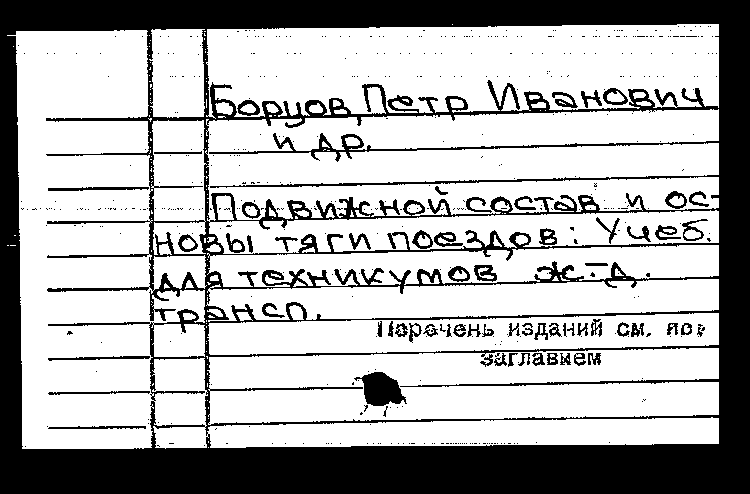 Борцов, Петр Иванович
и др.
Подвижной состав и ос-
новы тяги поездов: Учеб.
для техникумов ж.-д.
трансп.
Перечень изданий см. под
заглавием